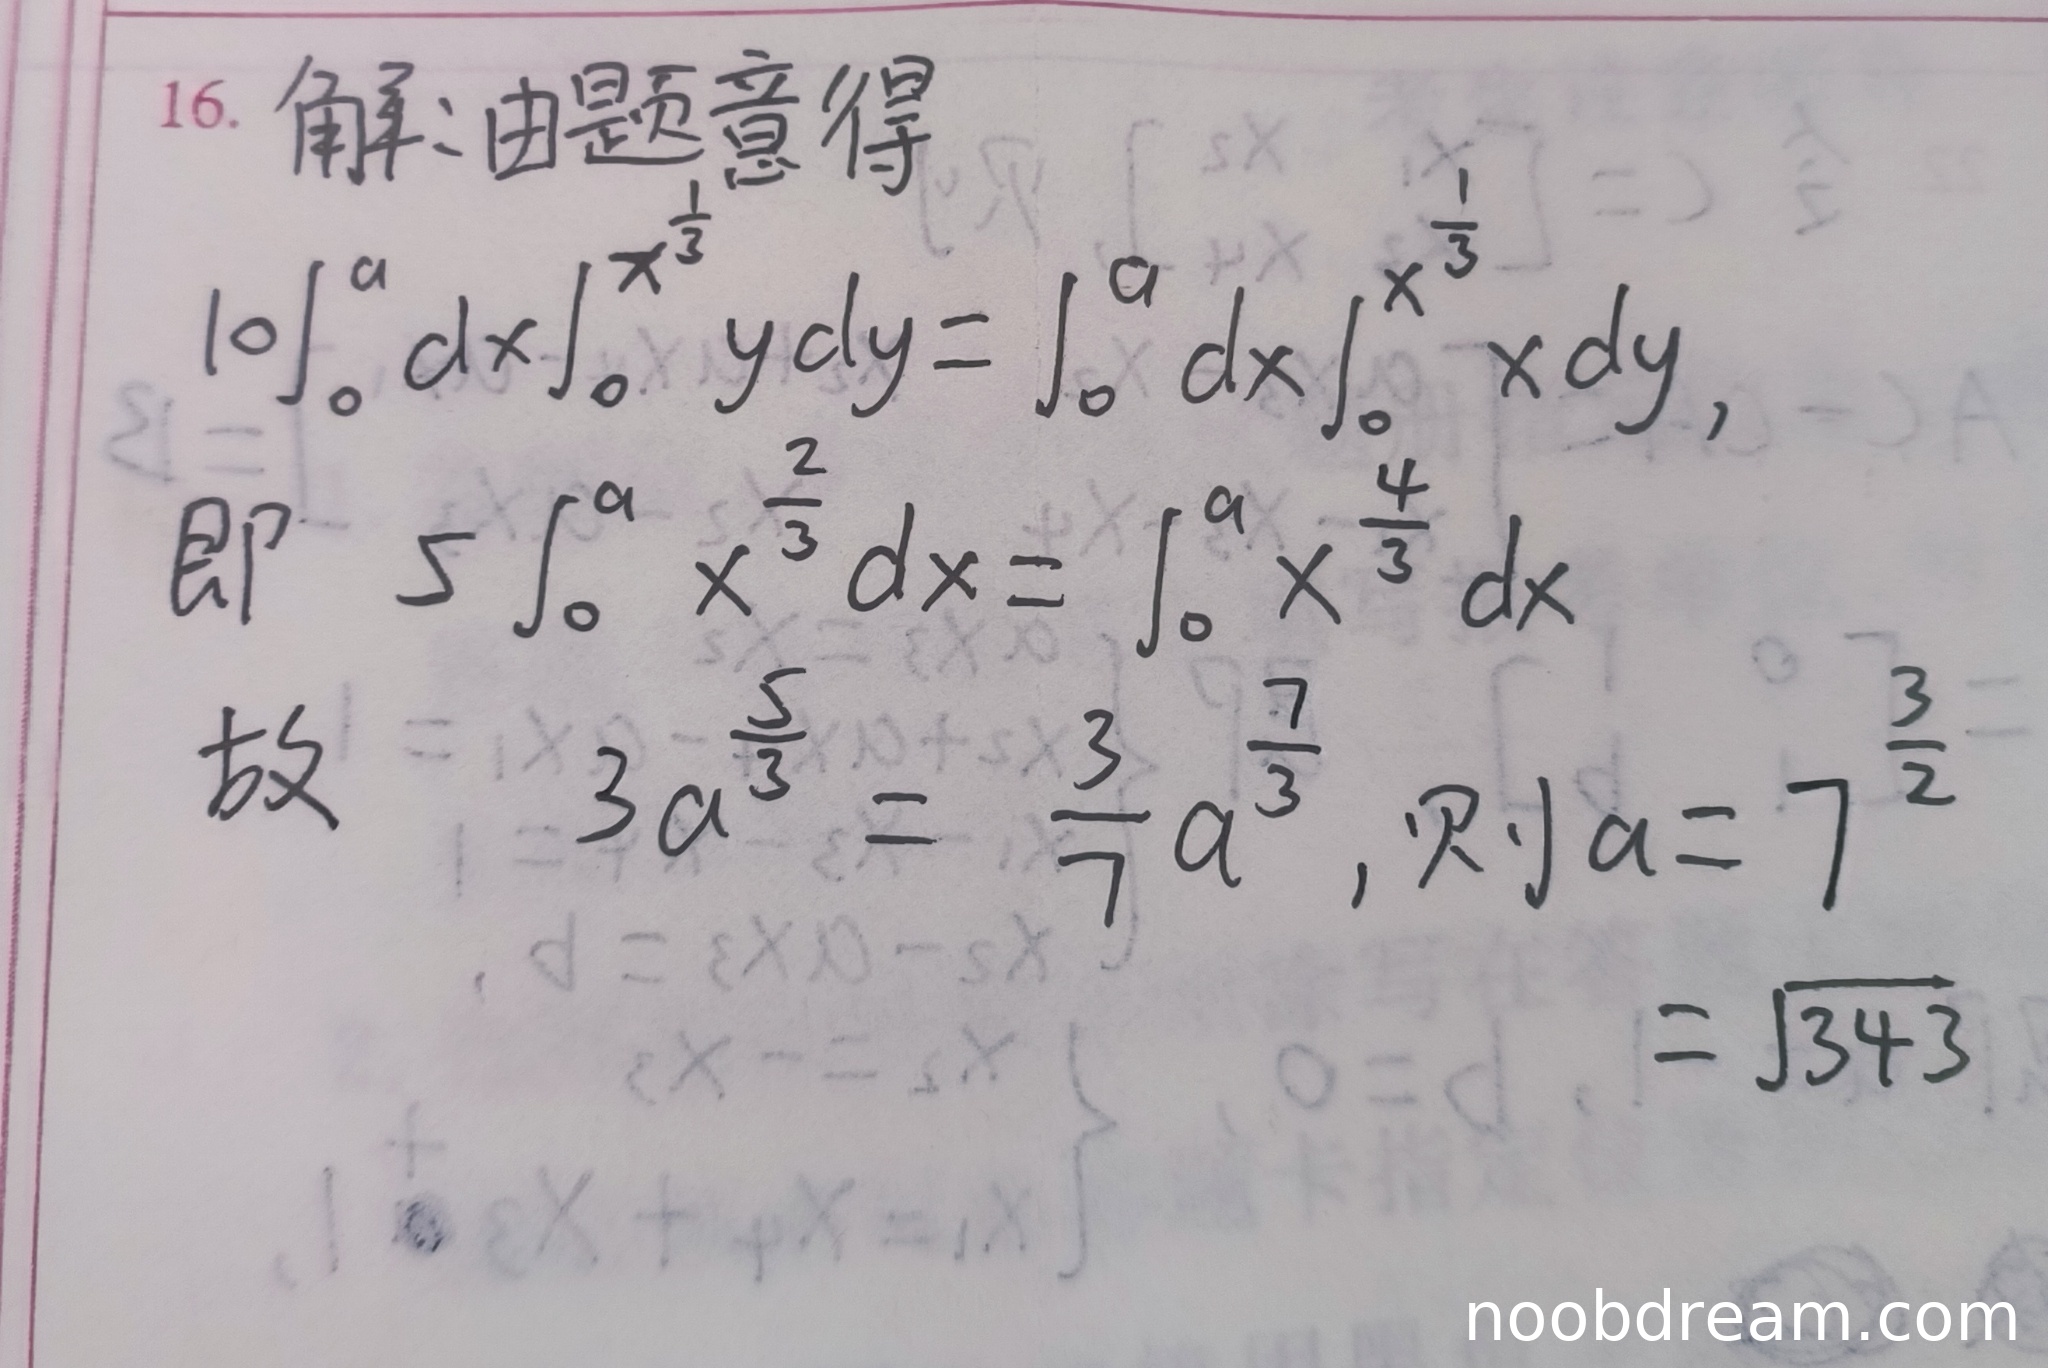 16. 解：由题意得
10∫₀ᵃ dx∫₀^(x^(1/3)) ydy = ∫₀ᵃ dx∫₀^(x^(1/3)) xdy,
即 5∫₀ᵃ x^(2/3) dx = ∫₀ᵃ x^(4/3) dx
故 3a^(5/3) = 3/7 a^(7/3), 则 a = 7^(3/2)
= √343
noobdream.com